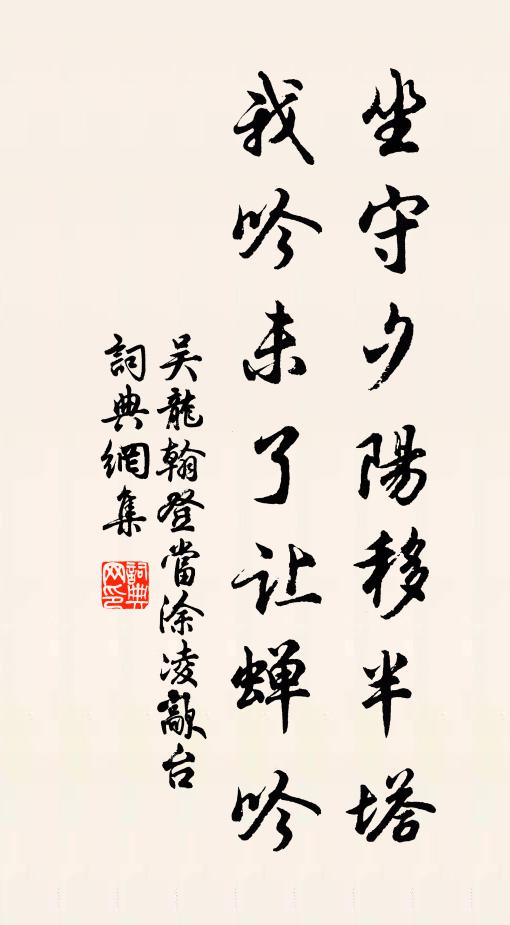 坐守夕陽移半塔
我吟未了让蝉吟
吴龍翰登當涂凌歊台
詞典網集
詞典网印